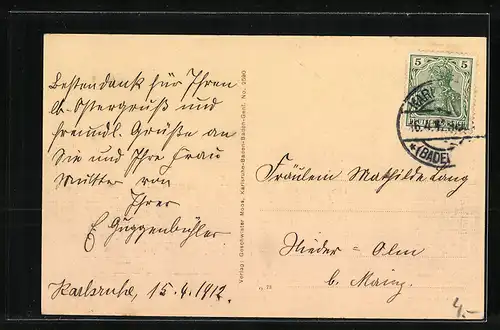 Bestendank für Ihren
lb. Ostergruß und
freundl. Grüße an
Sie und Ihre Frau
Mutter von
Ihrer
Guggenbühler
Karlsruhe, 15.4.1912.
Verlag: Geschwister Moos, Karlsruhe-Baden-Baden-Genf. No. 2590
5 5
DEUTSCHES REICH
KARL
16.4.12.
*(BADEN)
Fräulein Mathilde Lang
Nieder=Olm
b. Mainz
4.-